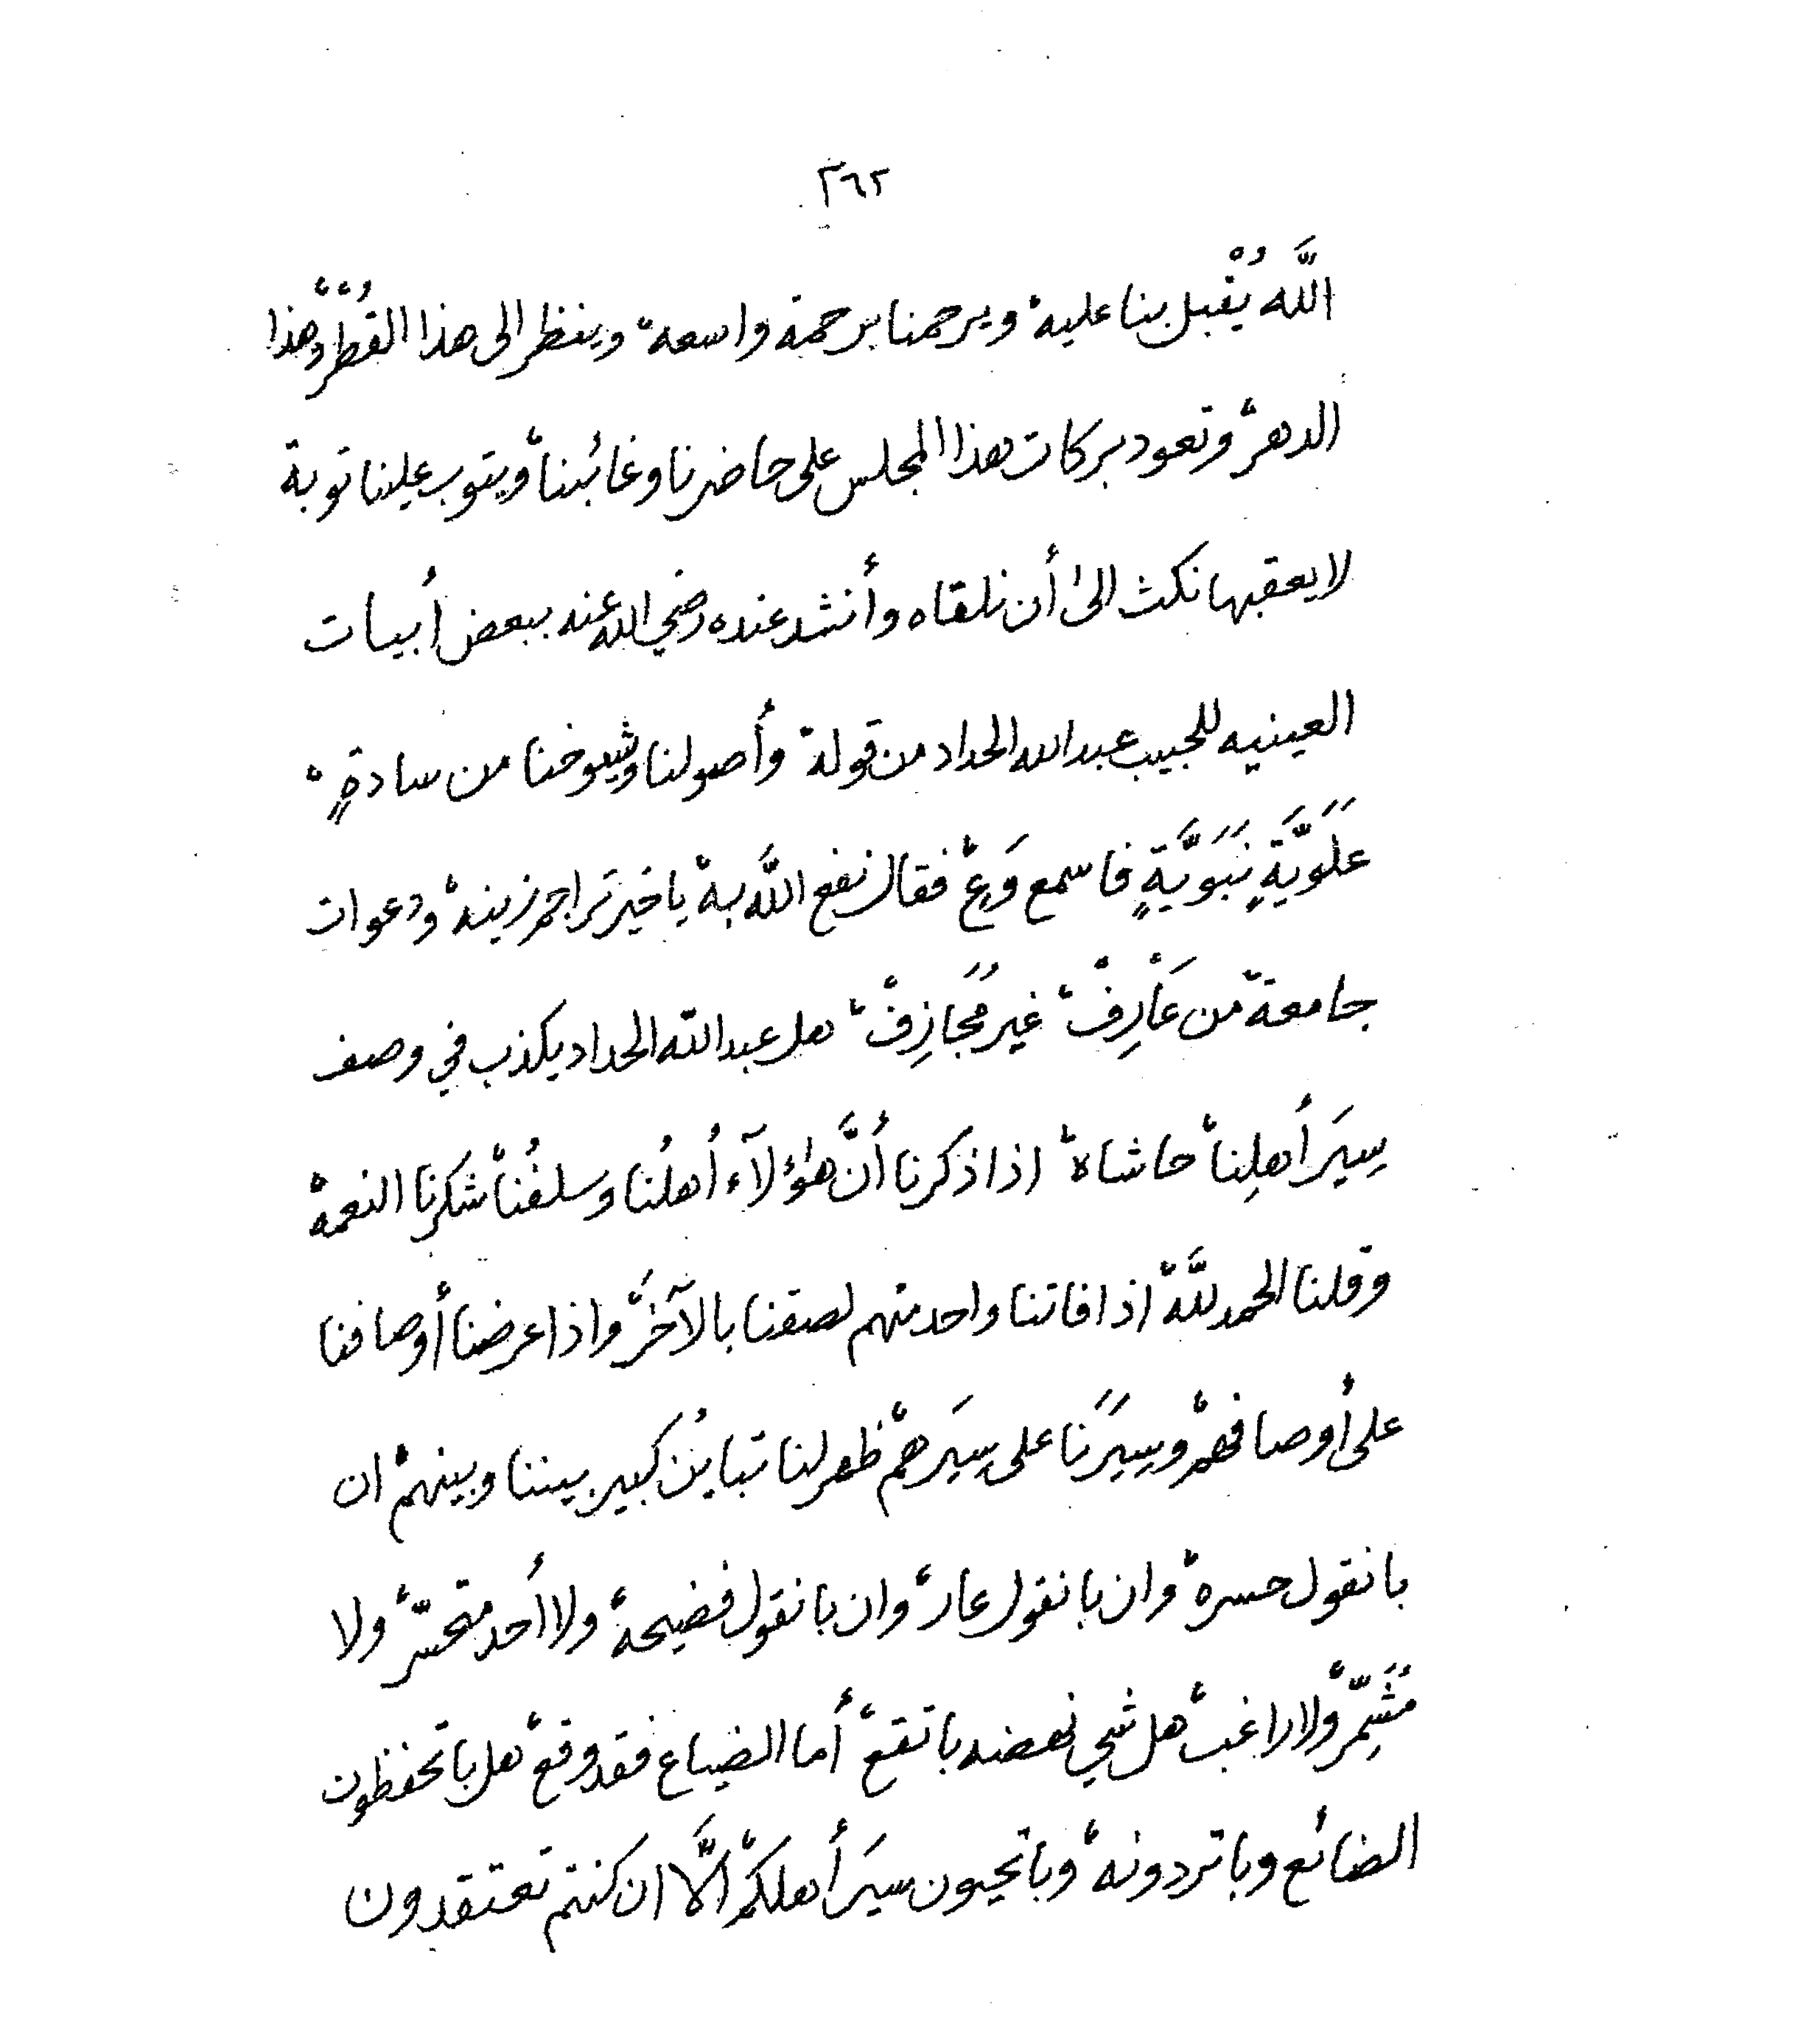 ٢٦٢
اللَّه يُقْبل بنا عليه، ويرحمنا برحمة واسعة، وينظر الى هذا القُطْر، وهذا
الدهر، وتعود بركات هذا المجلس على حاضرنا وغائبنا، ويتوب علينا توبة
لا يعقبها نكث الى أن نلقاه وأنشد عنده رضي الله عنه ببعض أبيات
العينيه للحبيب عبدالله الحداد من قوله، وأصولنا وشيوخنا من سادةٍ،
عَلَوِيَّةٍ نَبَوِيَّةٍ فاسمع وَعِ، فقال نفع اللَّه به، يا خير تراجم زينه، ودعوات
جامعة، من عَارِفْ، غير مُجَازِفْ، هل عبدالله الحداد يكذب في وصف
سِيَر أهلِنا، حاشاه، اذا ذكرنا أنَّ هؤلآء أهلُنا وسلفُنا، شكرنا النعمه،
وقلنا الحمد للَّه، اذا فاتنا واحد منهم لصقنا بالآخَر، واذا عرضنا أوصافنا
على أوصافهم، وسِيَرَنا على سِيَرهم، ظهر لنا تبايُن كبير بيننا وبينهم، ان
بانقول حسره، وان بانقول عار، وان بانقول فضيحة، ولا أحد متحسّر، ولا
مُشَمِّر، ولا راغب، هل شي نهضه باتقع، أما الضياع فقد وقع، هل باتحفظون
الضائع وباتردونه، وباتحيون سِيَر أهلكم، الَّا ان كنتم تعتقدون